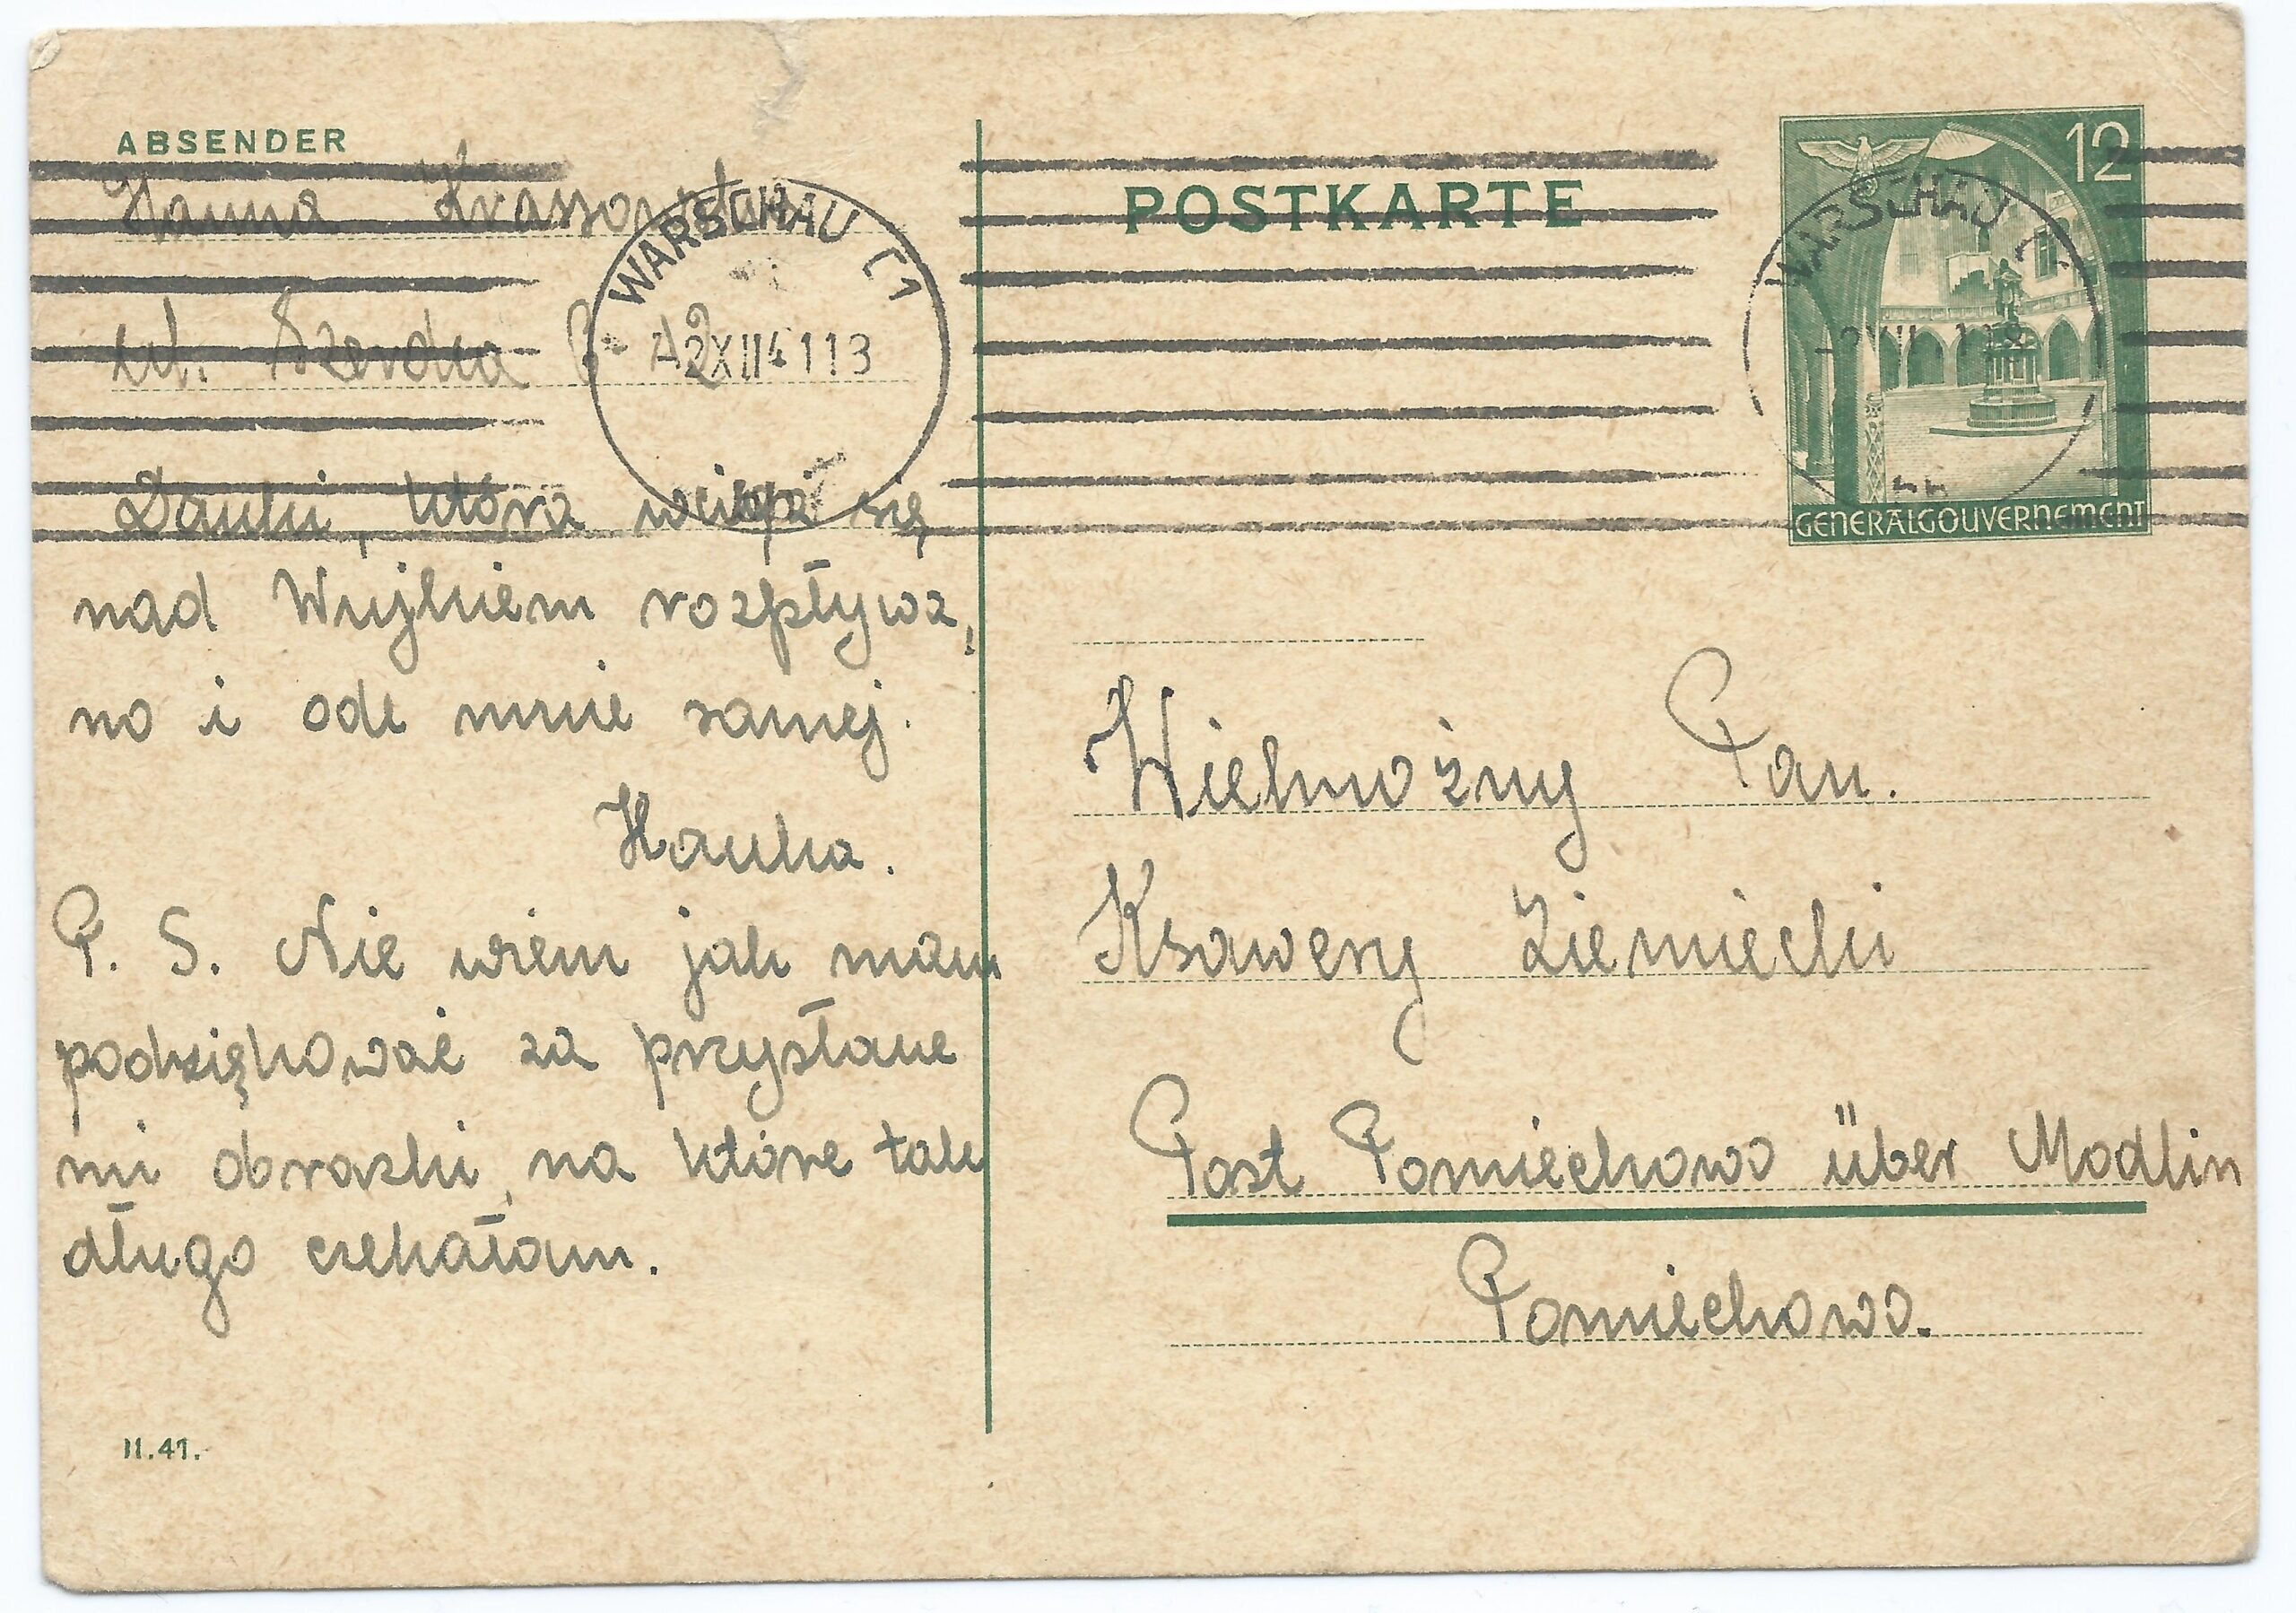 ABSENDER
Hanna
ul. Szeroka
WARSCHAU C1
2XII41 13
Danki, która wciąż się
nad Wujkiem rozpływa,
no i ode mnie samej.
Hanka.
P. S. Nie wiem jak mam
podziękować za przysłane
mi obrazki, na które tak
długo czekałam.
II.41.
POSTKARTE
12
WARSCHAU
GENERALGOUVERNEMENT
Wielmożny Pan.
Ksawery Ziemiecki
Post Pomiechowo über Modlin
Pomiechowo.